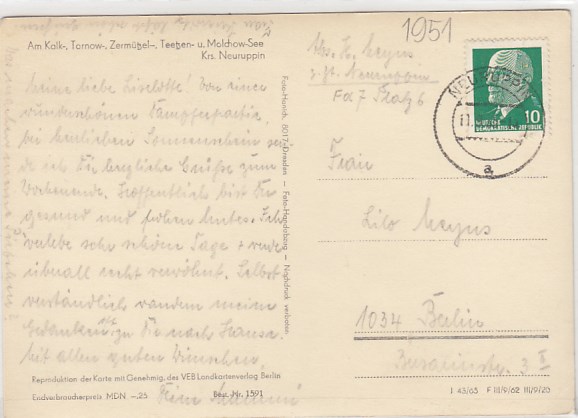 1951
Am Kalk-, Tornow-, Zermützel-, Teetzen- u. Molchow-See
Krs. Neuruppin
Meine liebe Liselotte! Von einer
wunderschönen Dampferpartie
bei herrlichem Sonnenschein sende
ich Dir herzliche Grüße zum
Wochenende. Hoffentlich bist Du
gesund und frohen Mutes. Ich
verlebe sehr schöne Tage + werde
überall recht verwöhnt. Selbst
verständlich wandern meine
Gedanken oft zu Dir nach Hause.
Mit allen guten Wünschen,
Deine
Foto-Handabzug — Nachdruck verboten
8017 Dresden
Reproduktion der Karte mit Genehmig. des VEB Landkartenverlag Berlin
Endverbraucherpreis MDN —.25
Best.-Nr. 1591
Abs. H. Meyns
z. Zt. Neuruppin
NEURUPPIN
a
10
DEUTSCHE
DEMOKRATISCHE REPUBLIK
Frau
Lilo Meyns
1034 Berlin
J 43/65 F III/9/62 III/9/20